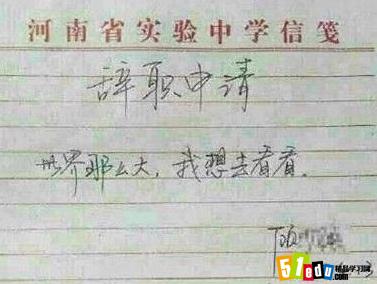 河南省实验中学信笺
辞职申请
世界那么大，我想去看看。
顾
51edu.com
精品学习网